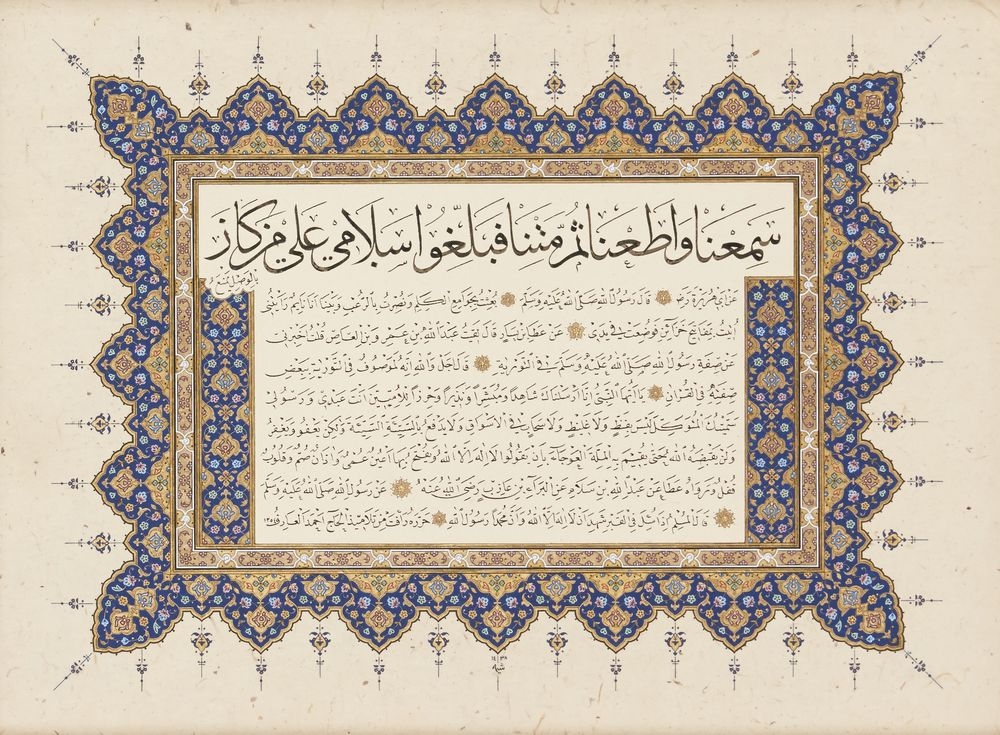 سمعنا واطعنا ثم متنا فبلغوا سلامي على من كان
بالوصل
عن ابي هريرة رضي قال رسول الله صلى الله عليه وسلم بعثت بجوامع الكلم ونصرت بالرعب وبينا انا نايم رايتني
اتيت بمفاتيح خزائن فوضعت في يدي عن عطا بن يسار قال لقيت عبد الله بن عمرو بن العاص قلت اخبرني
عن صفة رسول الله صلى الله عليه وسلم في التورية قال اجل والله انه لموصوف في التورية ببعض
صفته في القران يا ايها النبي انا ارسلناك شاهدا ومبشرا ونذيرا وحرزا للاميين انت عبدي ورسولي
سميتك المتوكل ليس بفظ ولا غليظ ولا سخاب في الاسواق ولا يدفع بالسيئة السيئة ولكن يعفو ويغفر
ولن يقبضه الله حتى يقيم به الملة العوجاء بان يقولوا لا اله الا الله ويفتح بها اعين عمي واذان صم وقلوب
غلف ورواه عطا عن عبد الله بن سلام عن البراء بن عازب رضي الله عنه عن رسول الله صلى الله عليه وسلم
قال المسلم اذا سئل في القبر شهد ان لا اله الا الله وان محمدا رسول الله حرره رافت من تلاميذ الحاج احمد العارف